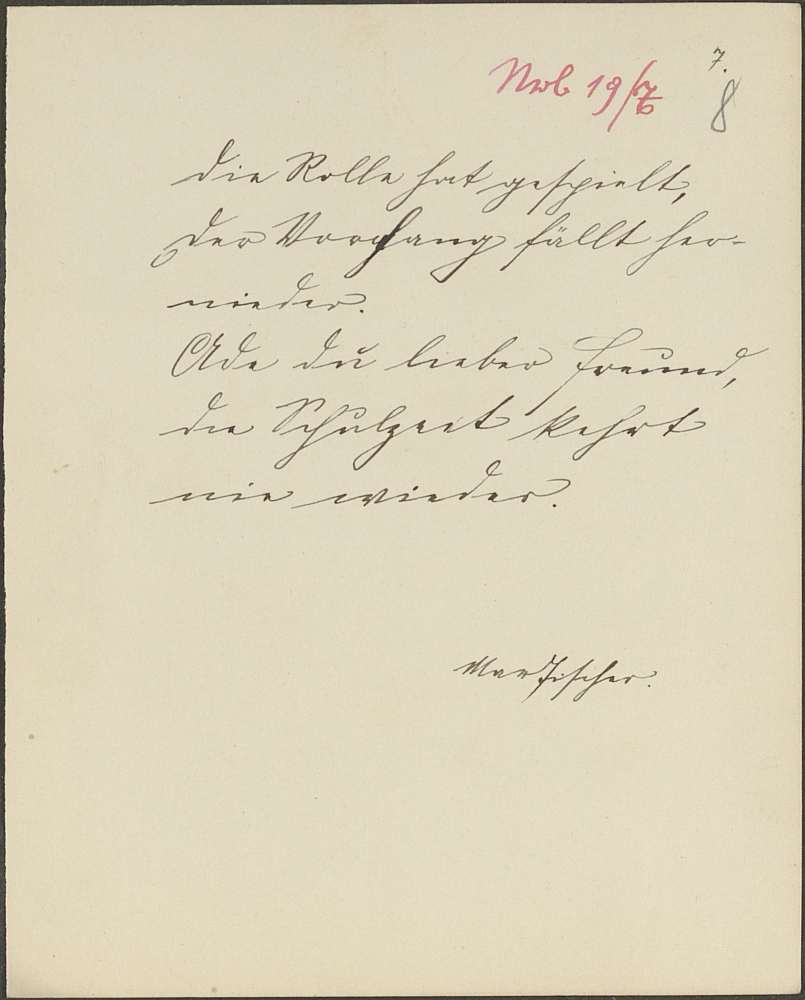 7.
8
19/6
Die Rolle hat gespielt,
der Vorhang fällt her-
nieder.
Ade du lieber Freund,
die Schulzeit kehrt
nie wieder.
Max Fischer.